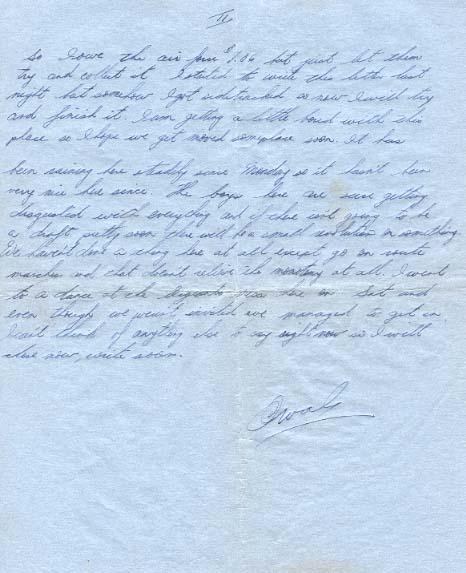 II
so I owe the air force $1.06 but just let them
try and collect it. I started to write this letter last
night but somehow I got sidetracked so now I will try
and finish it. I am getting a little bored with this
place so I hope we get moved someplace soon. It has
been raining here steadily since Monday so it hasn't been
very nice here since. The boys here are sure getting
disgusted with everything and if there isn't going to be
a draft pretty soon there will be a small revolution or something.
We haven't done a thing here at all except go on route
marches and that doesn't relieve the monotony at all. I went
to a dance at the near here on Sat and
even though we weren't invited we managed to get in.
I can't think of anything else to say right now so I will
close now, write soon.